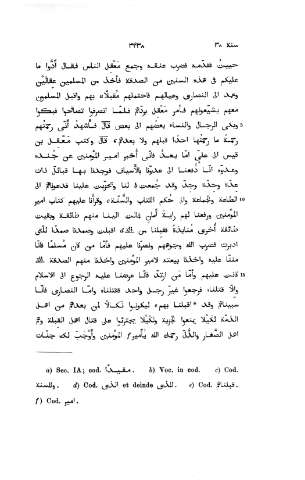 سنة ٣٨ ٣٤٣٨
حبيبت فقدّمه فضرب عنقه وجمع معقل الناس فقال أدّوا ما
عليكم فى هذه السنين من الصدقة فأخذ من المسلمين عقالَيْن
وعمد الى النصارى وعيالهم فاحتملهم مقبلًا بهم واقبل المسلمون
معهم يشيّعونهم فأمر معقل بردّهم فلمّا انصرفوا تصافحوا فبكوا
وبكى الرجال والنساء بعضهم الى بعض قال فأشهد أنّى رحمتُهم
رحمةً ما رحمتُها احدًا قبلهم ولا بعدهم قال وكتب معقل بن
قيس الى علىّ امّا بعد فأنّى أخبر امير المؤمنين عن جنده
وعدوّه أنّا دفعنا الى عدوّنا بالأسياف فوجدنا بها قبائل ذات
عدّة وحدّة وجدّ وقد جُمعت لنا وتحزّبت علينا فدعوناهم الى
الطاعة والجماعة والى حكم الكتاب والسنّة وقرأنا عليهم كتاب امير
المؤمنين ورفعنا لهم راية أمان فمالت الينا منهم طائفة وبقيت
طائفة أخرى منابذة فقبلنا من الّتى اقبلت وصمدنا صمدًا للّتى
ادبرت فضرب الله وجوههم ونصرنا عليهم فأمّا من كان مسلمًا فأنّا
مننّا عليه واخذنا بيعته لامير المؤمنين واخذنا منهم الصدقة الّتى
كانت عليهم وأمّا من ارتدّ فأنّا عرضنا عليه الرجوع الى الاسلام
وألّا قتلناه فرجعوا غير رجل واحد فقتلناه وأمّا النصارى فأنّا
سبيناهم وقد اقبلنا بهم ليكونوا نكالًا لمن بعدهم من اهل
الذمّة لكيلا يمنعوا الجزية ولكيلا يجترئوا على قتال اهل القبلة وهم
اهل الصَّغار والذلّ رحمك الله يأمير المؤمنين وأوجب لك جنات
a) Sec. IA; cod. مقيدا. b) Voc. in cod. c) Cod.
والسنة. d) Cod. الذى et deinde للذى. e) Cod. قبلنا.
f) Cod. امير.